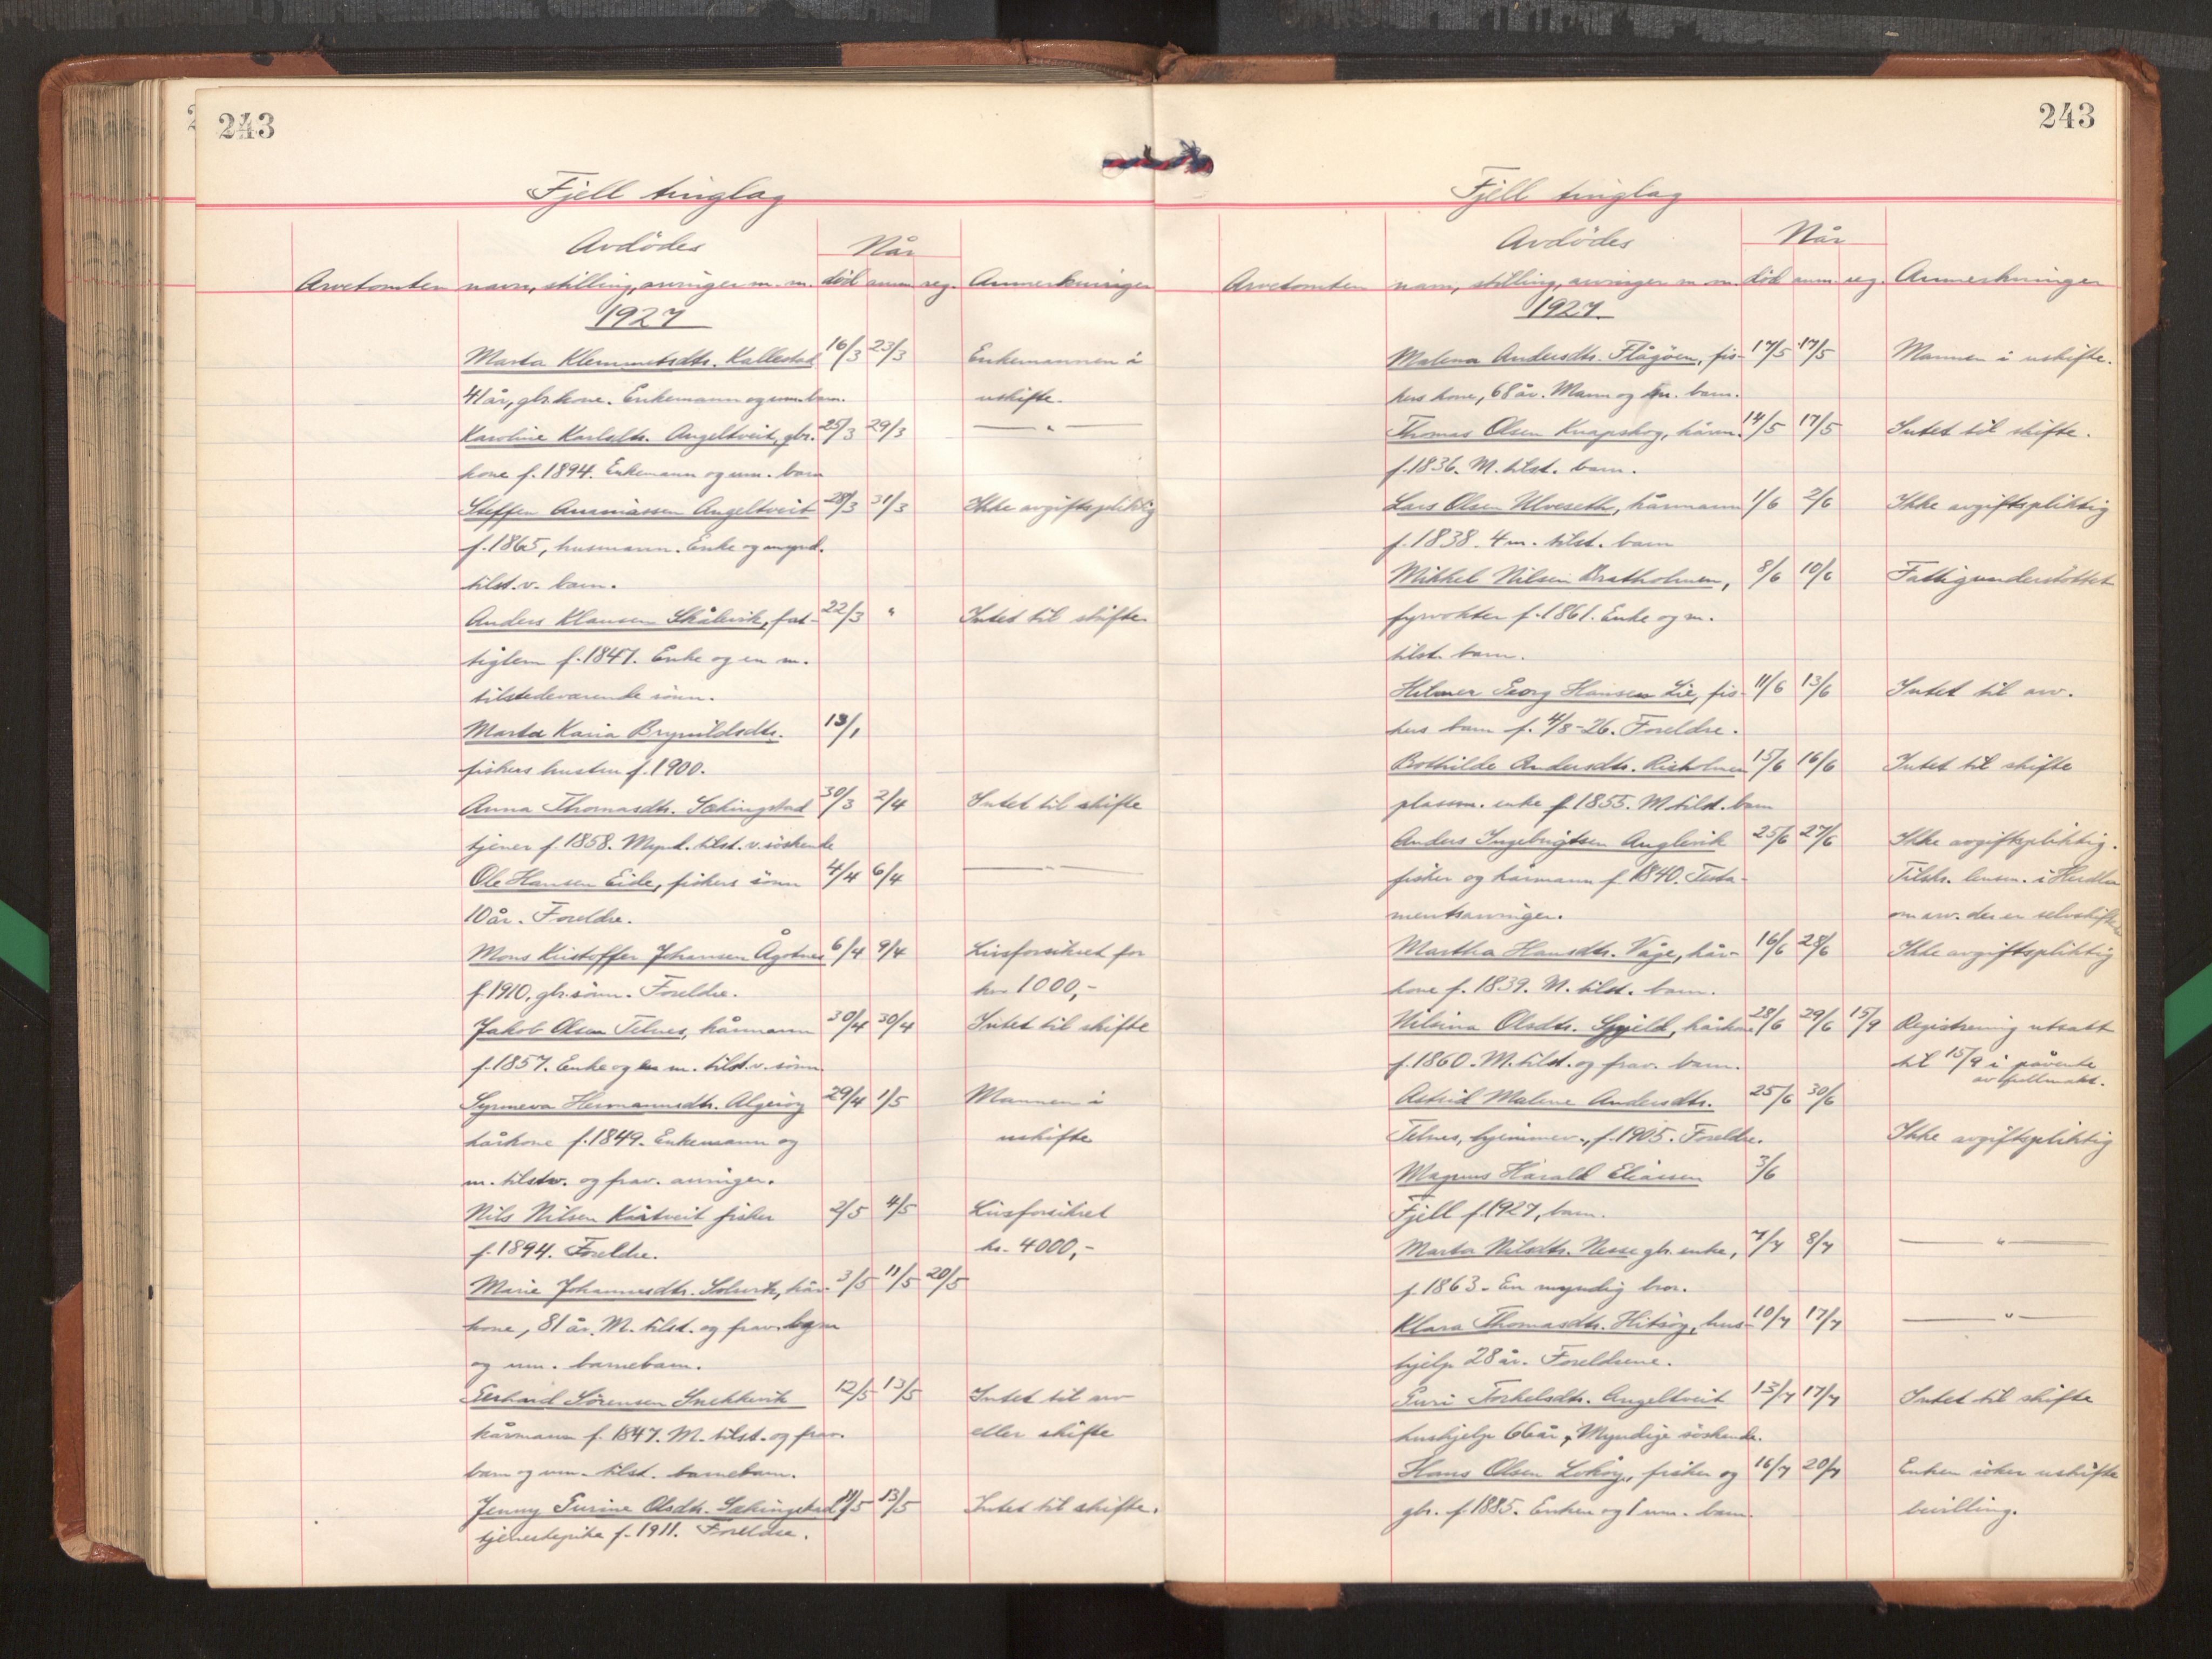 243
Fjell tinglag
Avdödes
Når
Arvetomten navn, stilling, arvinger m. m. död anm. reg. Anmerkninger
1927
Marta Klemmetsdtr. Kallestad 16/3 23/3 Enkemannen i
41 år, gbr. kone. Enkemann og um. barn. uskifte.
Karoline Karlsdtr. Angeltveit, gbr. 25/3 29/3 — " —
kone f. 1894. Enkemann og um. barn
Steffen Ananiassen Angeltveit 28/3 31/3 Ikke avgiftspliktig
f. 1865, husmann. Enke og mynd.
tilst. v. barn.
Anders Klausen Skålevik, fat- 22/3 " Intet til skifte
tiglem f. 1847. Enke og en m.
tilstedeværende sönn.
Marta Karia Brynildsdtr. 13/1
fiskers hustru f. 1900.
Anna Thomasdtr. Sækingstad 30/3 2/4 Intet til skifte
tjener f. 1858. Mynd. tilst. v. söskende
Ole Hansen Eide, fiskers sönn 4/4 6/4 — " —
10 år. Foreldre.
Mons Kristoffer Johansen Ågotnes 6/4 9/4 Livsforsikret for
f. 1910, gbr. sönn. Foreldre. kr. 1000,-
Jakob Olsen Telnes, kårmann 30/4 30/4 Intet til skifte
f. 1857. Enke og en m. tilst. v. sönn
Synneva Hermannsdtr. Algeröy 29/4 1/5 Mannen i
kårkone f. 1849. Enkemann og uskifte
m. tilstv. og frav. arvinger.
Nils Nilsen Kårtveit fisker 2/5 4/5 Livsforsikret
f. 1894. Foreldre. kr. 4000,-
Marie Johannesdtr. Solsvik, kår- 3/5 11/5 20/5
kone, 81 år. M. tilst. og frav. barn
og um. barnebarn.
Gerhard Sörensen Snekkevik 12/5 13/5 Intet til arv
kårmann f. 1847. M. tilst. og frav. eller skifte
barn og um. tilst. barnebarn.
Jenny Gurine Olsdtr. Sækingstad 11/5 13/5 Intet til skifte.
tjenestepike f. 1911. Foreldre.
243
Fjell tinglag
Avdödes
Når
Arvetomten navn, stilling, arvinger m. m. död anm. reg. Anmerkninger
1927
Malena Andersdtr. Flågöen, fis- 17/5 17/5 Mannen i uskifte.
kers kone, 68 år. Mann og m. barn.
Thomas Olsen Knapskog, kårm. 14/5 17/5 Intet til skifte.
f. 1836. M. tilst. barn.
Lars Olsen Ulveseth, kårmann 1/6 2/6 Ikke avgiftspliktig
f. 1838. 4 m. tilst. barn
Mikkel Nilsen Bratholmen, 8/6 10/6 Fattigunderstöttet
fyrvokter f. 1861. Enke og m.
tilst. barn.
Helmer Georg Hansen Lie, fis- 11/6 13/6 Intet til arv.
kers barn f. 4/8-26. Foreldre.
Bothilde Andersdtr. Risholmen 15/6 16/6 Intet til skifte
plassm. enke f. 1855. M. tilst. barn
Anders Ingebrigtsen Anglevik 25/6 27/6 Ikke avgiftspliktig.
fisker og kårmann f. 1840. Testa- Tilskr. lensm. i Herdla
mentsarvinger. om arv. der er selvskifte
Martha Hansdtr. Våge, kår- 16/6 28/6 Ikke avgiftspliktig
kone f. 1839. M. tilst. barn.
Nilsina Olsdtr. Spjeld, kårkone 28/6 29/6 15/9 Registrering utsatt
f. 1860. M. tilst. og frav. barn. til 15/9 i påvente
av fullmakt.
Astrid Malene Andersdtr. 25/6 30/6
Telnes, hjemmev., f. 1905. Foreldre. Ikke avgiftspliktig
Magnus Harald Eliassen 3/6
Fjell f. 1927, barn.
Marta Nilsdtr. Nesse gbr. enke, 7/7 8/7 — " —
f. 1863. En myndig bror.
Klara Thomasdtr. Hitsöy, hus- 10/7 17/7 — " —
hjelp 28 år. Foreldrene.
Guri Torkelsdtr. Angeltveit 13/7 17/7 Intet til skifte
hushjelp 66 år, Myndige söskende.
Hans Olsen Loköy, fisker og 16/7 20/7 Enken söker uskifte
gbr. f. 1885. Enken og 1 um. barn. bevilling.